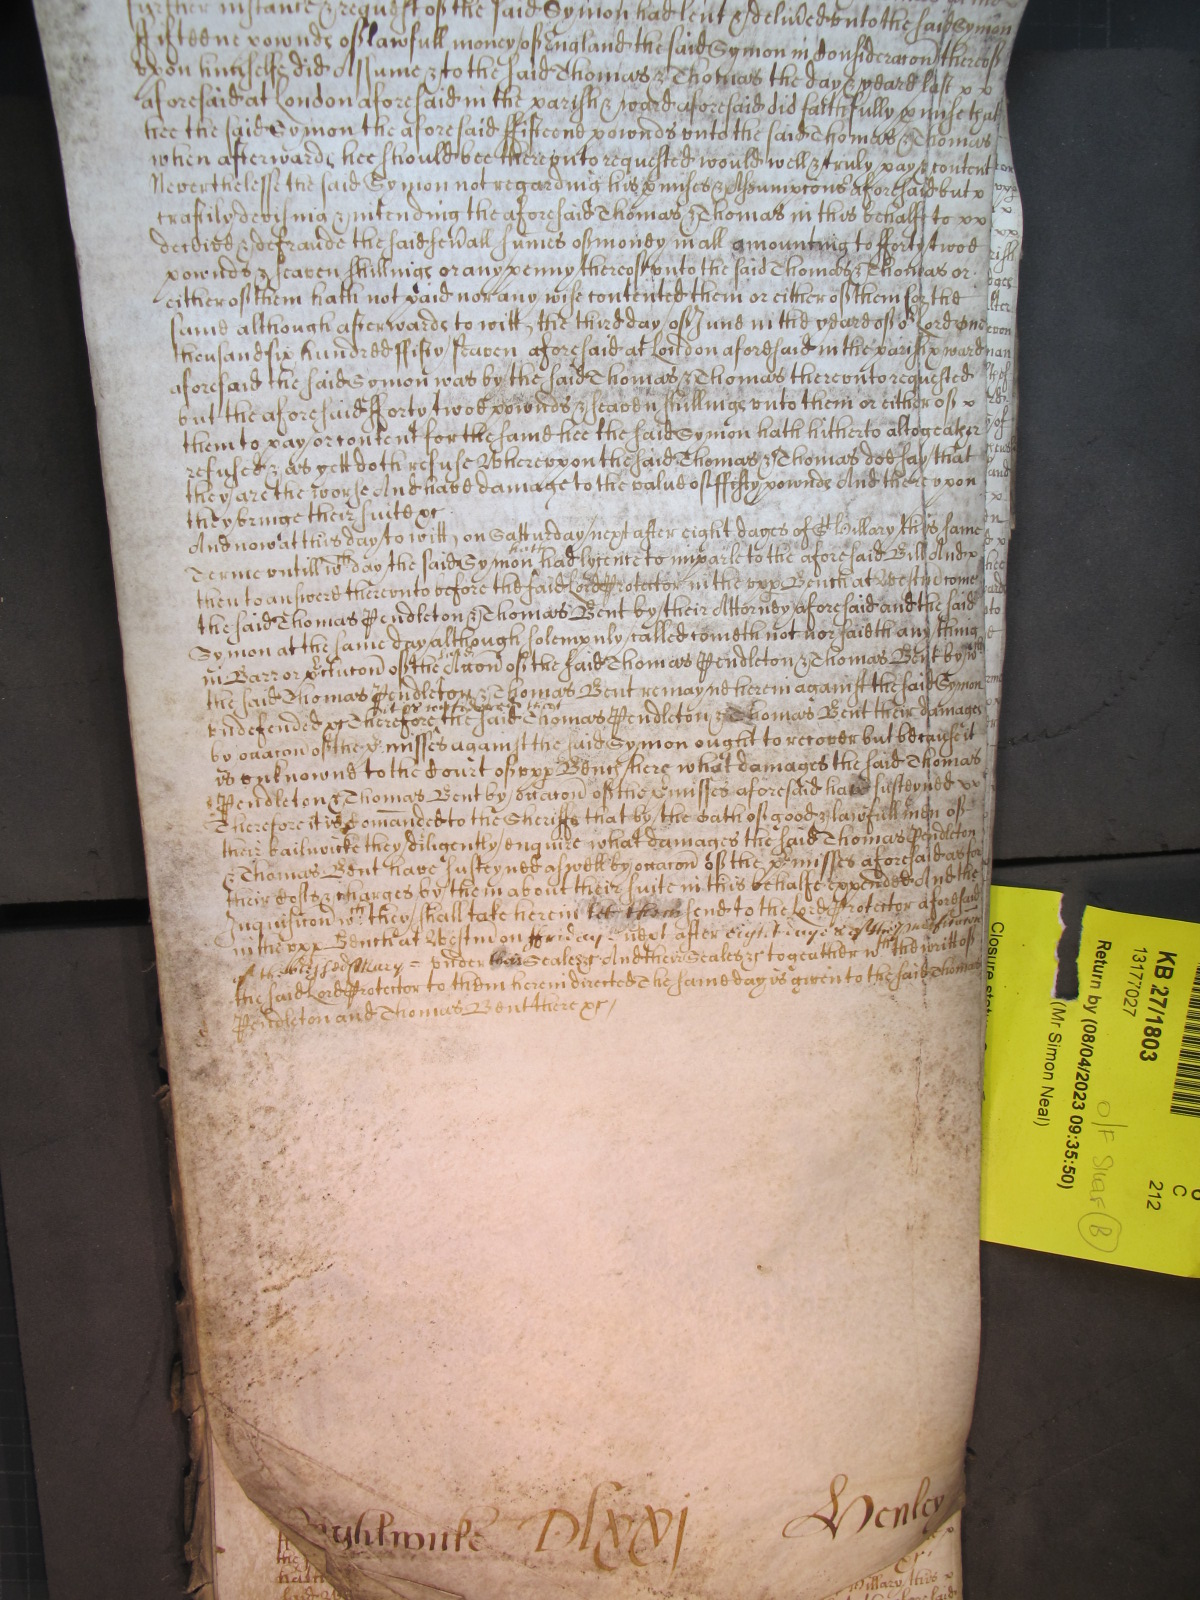 further instance & request of the said Symon had lent & delivered unto the said Symon
ffifteene pownds of lawfull money of England the said Symon in Consideracon thereof
vpon himselfe did Assume & to the said Thomas & Thomas the day & yeare last x x
aforesaid at London aforesaid in the parish & ward aforesaid did faithfully p mise that
hee the said Symon the aforesaid ffifteene pownds vnto the said Thomas & Thomas
when afterwards hee should bee therevnto requested would well & truly pay & content
Neverthelesse the said Symon not regarding his p mises & Assumpcons aforesaid but x
craftily devising & intending the aforesaid Thomas & Thomas in this behalfe to xx
deceive & defraude the said se&all sumes of money in all amounting to fforty twoe
pownds & seaven shillings or any penny thereof vnto the said Thomas & Thomas or
either of them hath not paid nor any wise contented them or either of them for the
same although afterwards to witt, the third day of June in the yeare of or Lord one
thousand six hundred ffifty seaven aforesaid at London aforesaid in the parish & ward
aforesaid the said Symon was by the said Thomas & Thomas therevnto requested
but the aforesaid fforty twoe pownds & seaven shillings vnto them or either of x
them to pay or content for the same hee the said Symon hath hitherto altogeather
refused & as yett doth refuse Wherevpon the said Thomas & Thomas doe say that
they are the worse And have damage to the value of ffifty pownds And therevpon
they bringe their suite &c
And now at this day to witt, on Satturday next after eight dayes of St Hillary this same
Terme vntill wch day the said Symon had lycence to imparle to the aforesaid Bill And x
then to answere therevnto before the said Lord Protector in the vpp Bench at Westm come
the said Thomas Pendleton & Thomas Bent by their Attorney aforesaid and the said
Symon at the same day although solempnly called cometh not nor saieth any thing
in Barr or p clucon of the said Accon of the said Thomas Pendleton & Thomas Bent by wch
the said Thomas Pendleton & Thomas Bent remayne herein against the said Symon
vndefended &c Therefore the said Thomas Pendleton & Thomas Bent their damages
by occacon of the p misses against the said Symon ought to recover but because it
is vnknowne to the Court of vpp Bench here what damages the said Thomas
Pendleton & Thomas Bent by occacon of the p misses aforesaid have susteyned xx
Therefore it is Comanded to the Sheriffs that by the oath of good & lawfull men of
their bailiwicke they diligently enquire what damages the said Thomas Pendleton
& Thomas Bent have susteyned aswell by occacon of the p misses aforesaid as for
their costs & charges by them about their suite in this behalfe expended And the
Inquisicon wch they shall take herein let them send to the Lord Protector aforesaid
in the vpp Bench at Westm on ffriday next after eight dayes of the purificacon
of the blessed Mary = vnder their Seales &c And their Seales &c togeather wth the writt of
the said Lord Protector to them herein directed The same day is given to the said Thomas
Pendleton and Thomas Bent there &c/
Dlxxj
Henley
KB 27/1803
13177027
Return by (08/04/2023 09:35:50)
(Mr Simon Neal)
Closure status
O/F Shas B
C
212